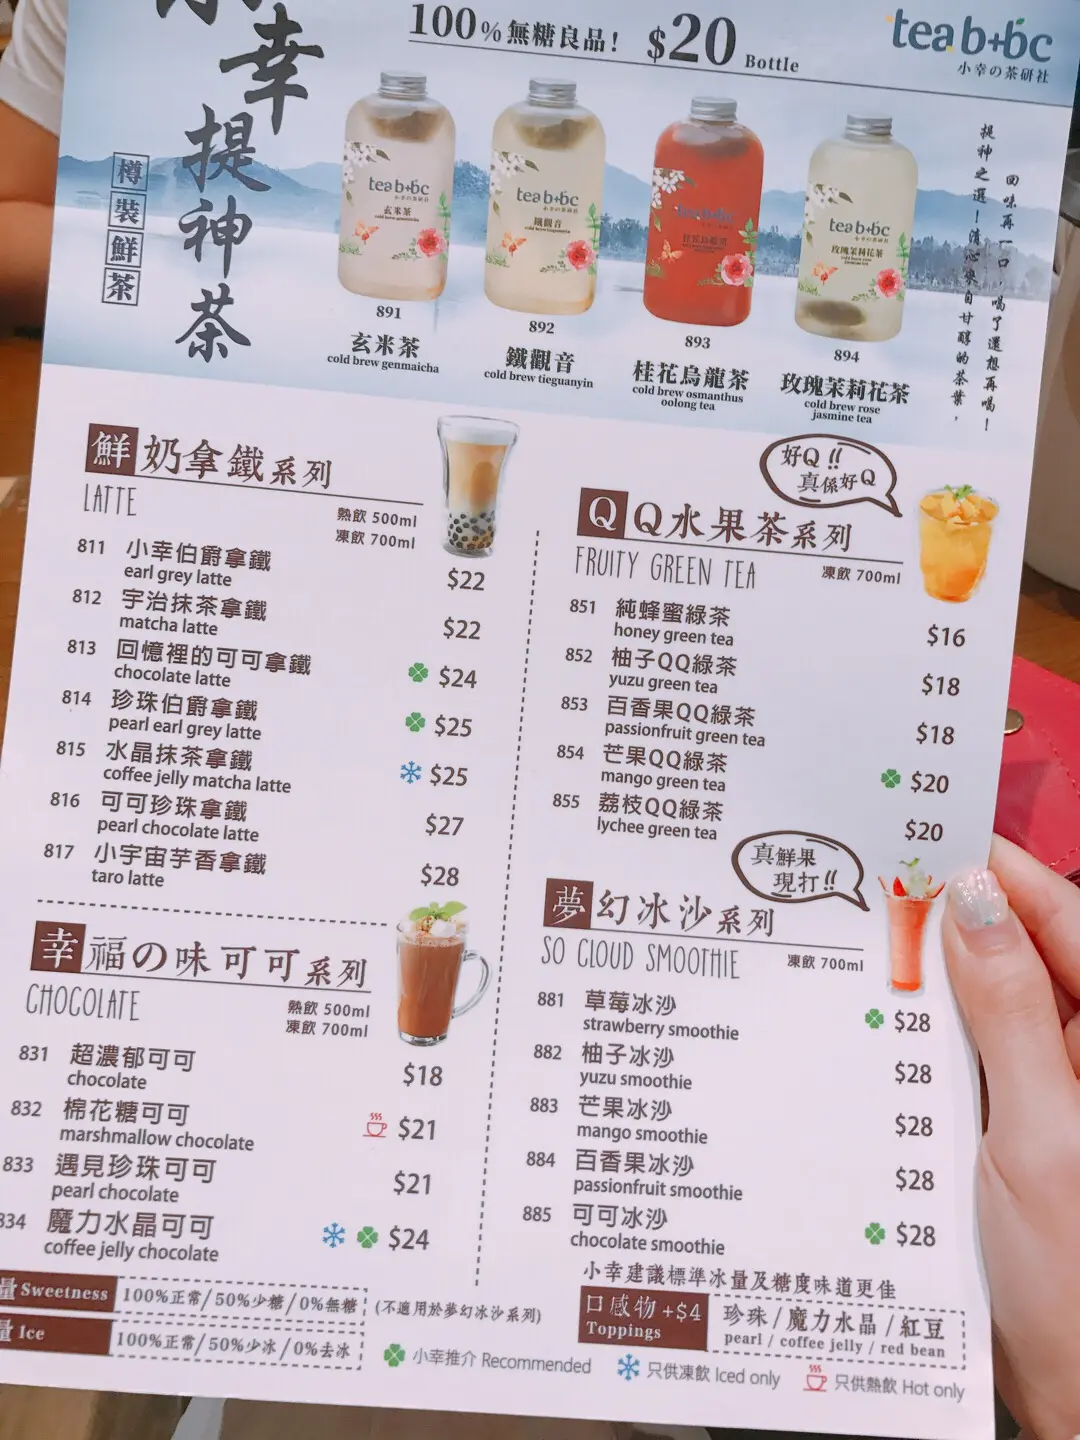 小幸
提神茶
樽裝鮮茶
100%無糖良品! $20 Bottle
tea b+bc
小幸の茶研社
回味再一口，喝了還想再喝！
提神之選！清沁來自甘醇的茶葉，
tea b+bc
小幸の茶研社
玄米茶
cold brew genmaicha
tea b+bc
小幸の茶研社
鐵觀音
cold brew tieguanyin
tea b+bc
桂花烏龍茶
tea b+bc
小幸の茶研社
玫瑰茉莉花茶
cold brew rose
jasmine tea
891
玄米茶
cold brew genmaicha
892
鐵觀音
cold brew tieguanyin
893
桂花烏龍茶
cold brew osmanthus
oolong tea
894
玫瑰茉莉花茶
cold brew rose
jasmine tea
鮮奶拿鐵系列
LATTE
熱飲 500ml
凍飲 700ml
811 小幸伯爵拿鐵
earl grey latte $22
812 宇治抹茶拿鐵
matcha latte $22
813 回憶裡的可可拿鐵
chocolate latte $24
814 珍珠伯爵拿鐵
pearl earl grey latte $25
815 水晶抹茶拿鐵
coffee jelly matcha latte $25
816 可可珍珠拿鐵
pearl chocolate latte $27
817 小宇宙芋香拿鐵
taro latte $28
幸福の味可可系列
CHOCOLATE
熱飲 500ml
凍飲 700ml
831 超濃郁可可
chocolate $18
832 棉花糖可可
marshmallow chocolate $21
833 遇見珍珠可可
pearl chocolate $21
834 魔力水晶可可
coffee jelly chocolate $24
好Q!!
真係好Q
QQ水果茶系列
FRUITY GREEN TEA
凍飲 700ml
851 純蜂蜜綠茶
honey green tea $16
852 柚子QQ綠茶
yuzu green tea $18
853 百香果QQ綠茶
passionfruit green tea $18
854 芒果QQ綠茶
mango green tea $20
855 荔枝QQ綠茶
lychee green tea $20
真鮮果
現打!!
夢幻冰沙系列
SO CLOUD SMOOTHIE
凍飲 700ml
881 草莓冰沙
strawberry smoothie $28
882 柚子冰沙
yuzu smoothie $28
883 芒果冰沙
mango smoothie $28
884 百香果冰沙
passionfruit smoothie $28
885 可可冰沙
chocolate smoothie $28
小幸建議標準冰量及糖度味道更佳
量 Sweetness 100%正常/50%少糖/0%無糖 (不適用於夢幻冰沙系列)
量 Ice 100%正常/50%少冰/0%去冰
口感物 +$4
Toppings
珍珠/魔力水晶/紅豆
pearl / coffee jelly / red bean
小幸推介 Recommended 只供凍飲 Iced only 只供熱飲 Hot only